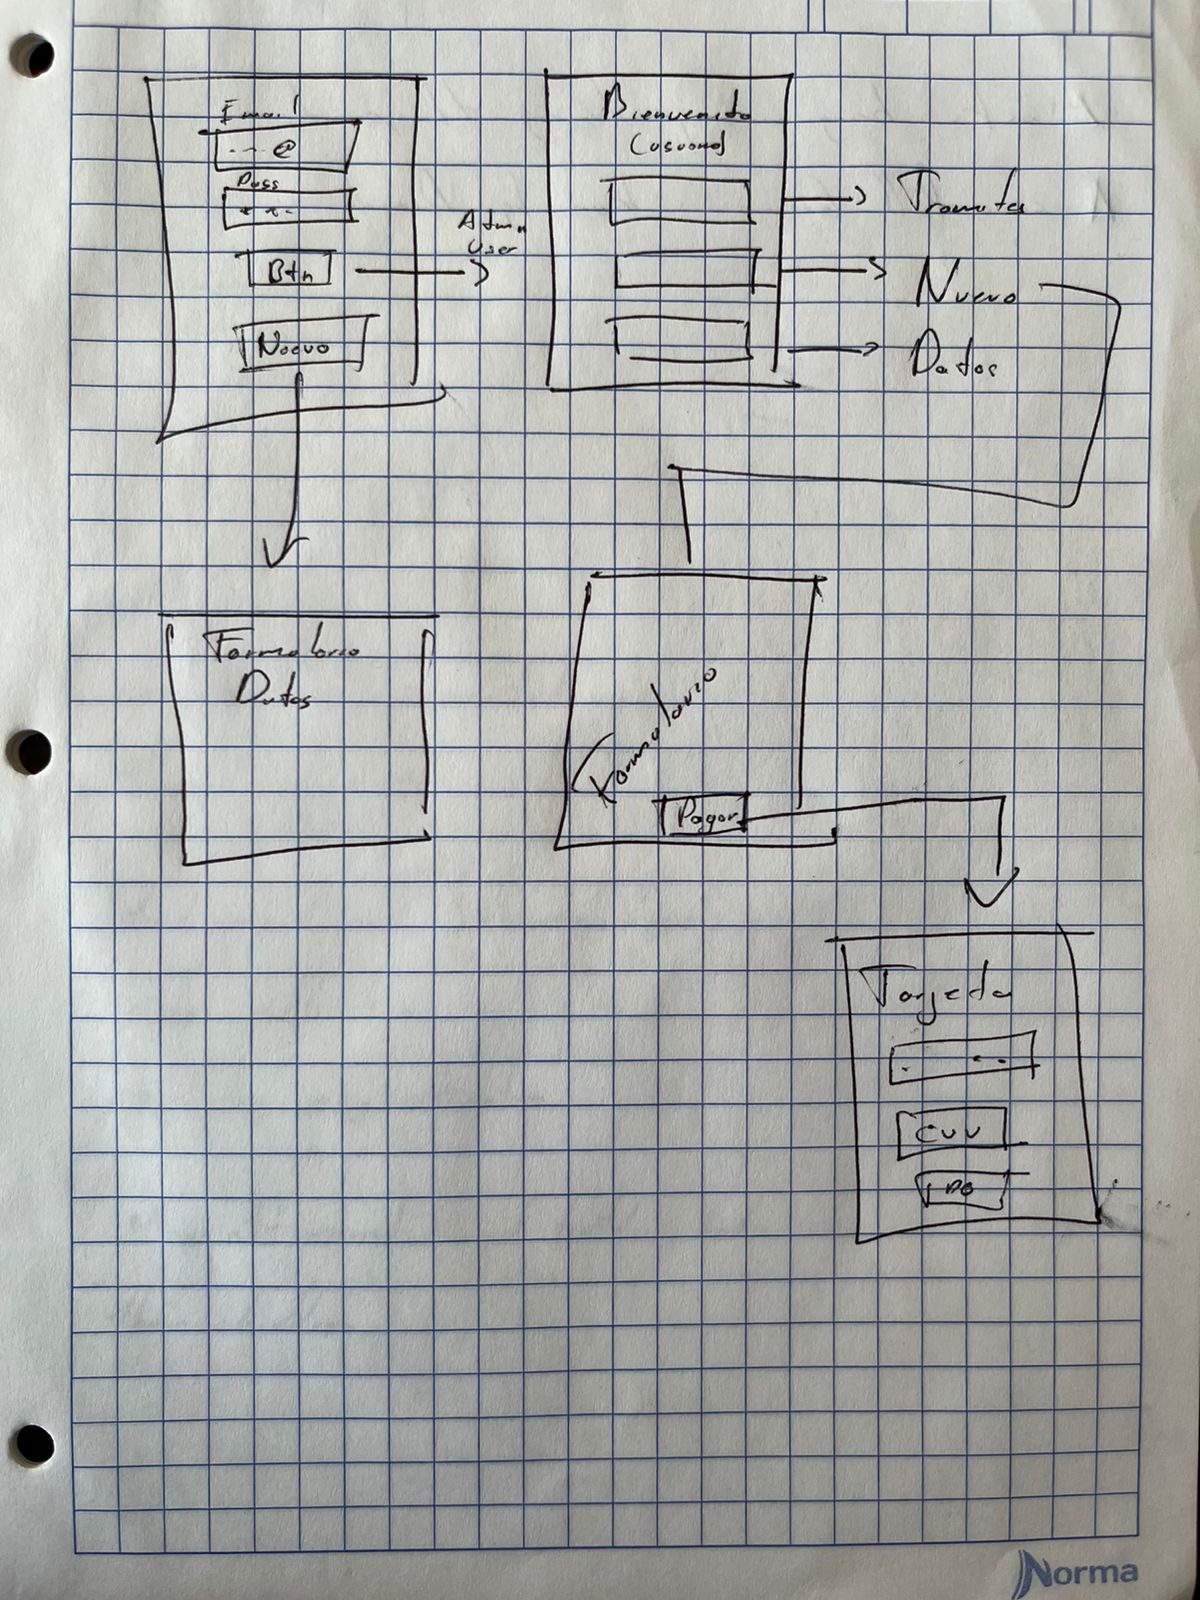 Email
--- @
Pass
* * -
Btn
Nuevo
Admin
User
Bienvenido
(usuario)
Tramites
Nuevo
Datos
Formulario
Datos
Formulario
Pagar
Tarjeta
. - -
CVV
Norma